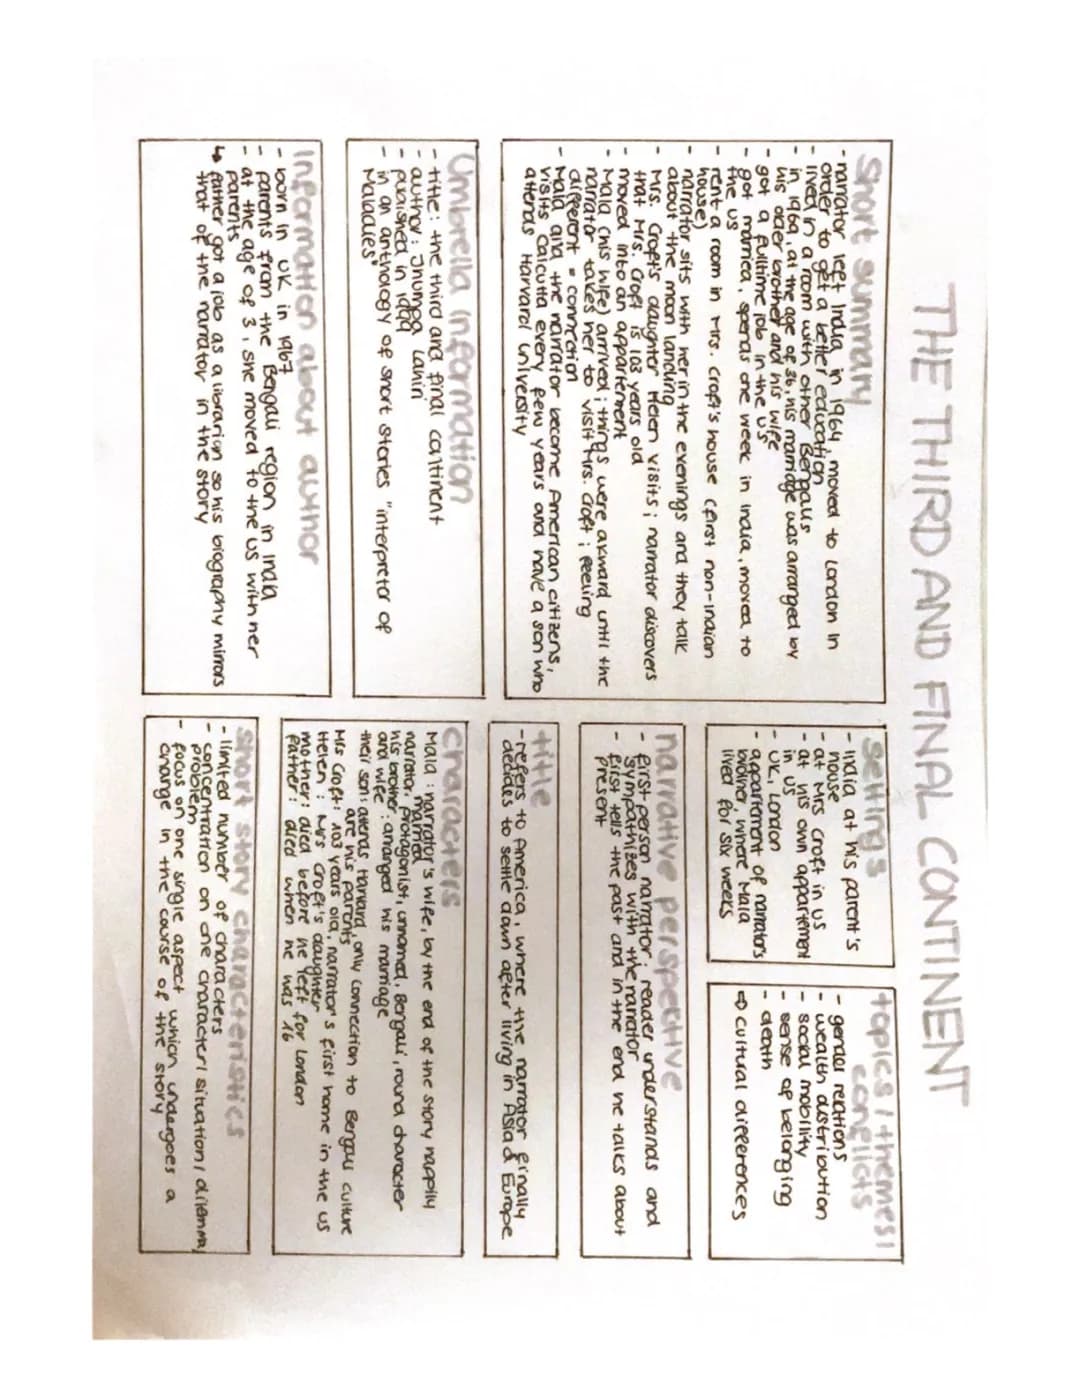 THE THIRD AND FINAL CONTINENT
Short summary
- narrator left India in 1964, moved to London in
order to get a better education
- lived in a room with other Bengalis
- in 1969, at the age of 36, his marriage was arranged by
his older brother and his wife
- got a fulltime job in the US
- got married, spends one week in India, moved to
the US
- rent a room in Mrs. Croft's house (first non-indian
house)
- narrator sits with her in the evenings and they talk
about the moon landing
- Mrs. Croft's daughter Helen visits; narrator discovers
that Mrs. Croft is 103 years old
- moved into an appartement
- Mala (his wife) arrived; things were akward until the
narrator takes her to visit Mrs. Croft; feeling
different = connection
- Mala and the narrator become American citizens,
visits Calcutta every few years and have a son who
attends Harvard University
Umbrella information
- title: the third and final continent
- author: Jhumpa Lahiri
- published in 1999
- in an anthology of short stories "interpreter of
Maladies"
Information about author
- born in UK in 1967
- parents from the Bengali region in India
- at the age of 3, she moved to the US with her
parents
↳ father got a job as a librarian so his biography mirrors
that of the narrator in the story
settings
- India at his parent's
house
- at Mrs Croft in US
- at his own appartement
in US
- UK, London
- appartement of narrator's
brother, where Mala
lived for six weeks
topics / themes /
conflicts
- gender relations
- wealth distribution
- social mobility
- sense of belonging
- death
⇨ cultural differences
narrative perspective
- first person narrator; reader understands and
sympathizes with the narrator
- first tells the past and in the end he talks about
present
title
- refers to America, where the narrator finally
decides to settle down after living in Asia & Europe
characters
Mala: narrator's wife, by the end of the story happily
married
narrator: protagonist, unnamed, Bengali, round character
his brother and wife: arranged his marriage
their son: attends Harvard, only connection to Bengali culture
are his parents
Mrs Croft: 103 years old, narrator's first home in the US
Helen: Mrs Croft's daughter
mother: died before he left for London
father: died when he was 16
short story characteristics
- limited number of characters
- concentration on one character / situation / dilemma /
problem
- focus on one single aspect, which undergoes a
change in the course of the story